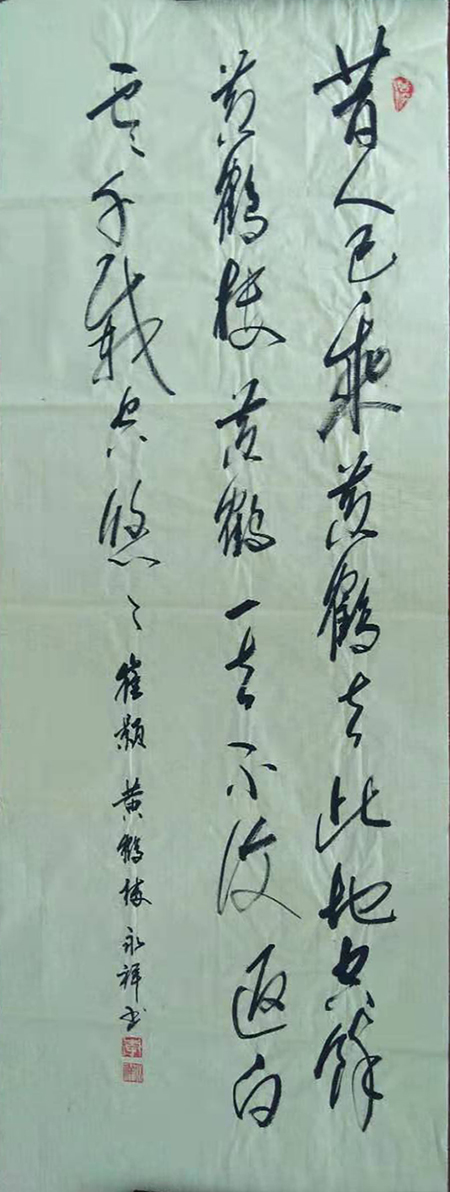 昔人已乘黄鹤去此地空餘
黄鹤楼黄鹤一去不復返白
雲〻千载空悠〻崔颢黄鹤楼永祥书